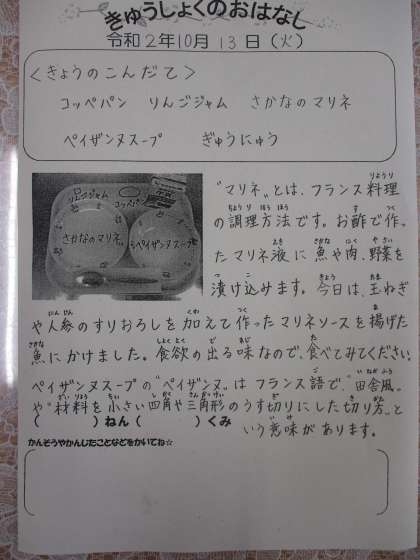 きゅうしょくのおはなし
令和2年10月13日(火)
<きょうのこんだて>
コッペパン りんごジャム さかなのマリネ
ペイザンヌスープ ぎゅうにゅう
りんごジャム
コッペパン
さかなのマリネ
ペイザンヌスープ
"マリネ"とは、フランス料理
の調理方法です。お酢で作っ
たマリネ液に魚や肉、野菜を
漬け込みます。今日は、玉ねぎ
や人参のすりおろしを加えて作ったマリネソースを揚げた
魚にかけました。食欲の出る味なので、食べてみてください。
ペイザンヌスープの"ペイザンヌ"はフランス語で、"田舎風"
や"材料を小さい四角や三角形のうす切りにした切り方"と
いう意味があります。
( )ねん( )くみ
かんそうやかんじたことなどをかいてね☆